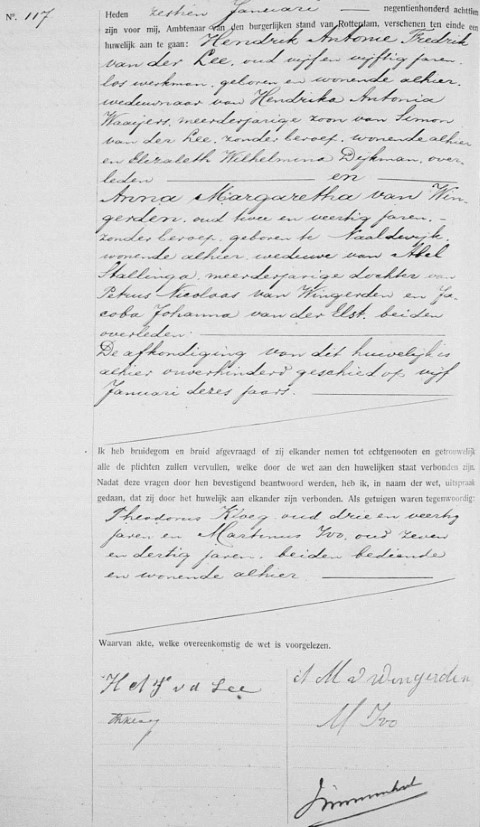 Nº. 117
Heden zestien Januari — negentienhonderd achttien
zijn voor mij, Ambtenaar van den burgerlijken stand van Rotterdam, verschenen ten einde een
huwelijk aan te gaan: Hendrik Antonie Fredrik
van der Lee, oud vijf en vijftig jaren,
los werkman, geboren en wonende alhier,
weduwnaar van Hendrika Antonia
Waaijers, meerderjarige zoon van Simon
van der Lee, zonder beroep, wonende alhier
en Elizabeth Wilhelmina Dijkman, over-
leden — en —
Anna Margaretha van Win-
gerden, oud twee en veertig jaren, -
zonder beroep, geboren te Naaldwijk,
wonende alhier, weduwe van Abel
Stallinga, meerderjarige dochter van
Petrus Nicolaas van Wingerden en Ja-
coba Johanna van der Elst, beiden
overleden. —
De afkondiging van dit huwelijk is
alhier onverhinderd geschied op vijf
Januari dezes jaars. —
Ik heb bruidegom en bruid afgevraagd of zij elkander nemen tot echtgenooten en getrouwelijk
alle de plichten zullen vervullen, welke door de wet aan den huwelijken staat verbonden zijn.
Nadat deze vragen door hen bevestigend beantwoord werden, heb ik, in naam der wet, uitspraak
gedaan, dat zij door het huwelijk aan elkander zijn verbonden. Als getuigen waren tegenwoordig:
Theodorus Kloeg, oud drie en veertig
jaren en Martinus Ivo, oud zeven
en dertig jaren, beiden bediende
en wonende alhier. —
Waarvan akte, welke overeenkomstig de wet is voorgelezen.
H A F v d Lee
A M v Wingerden
M Ivo